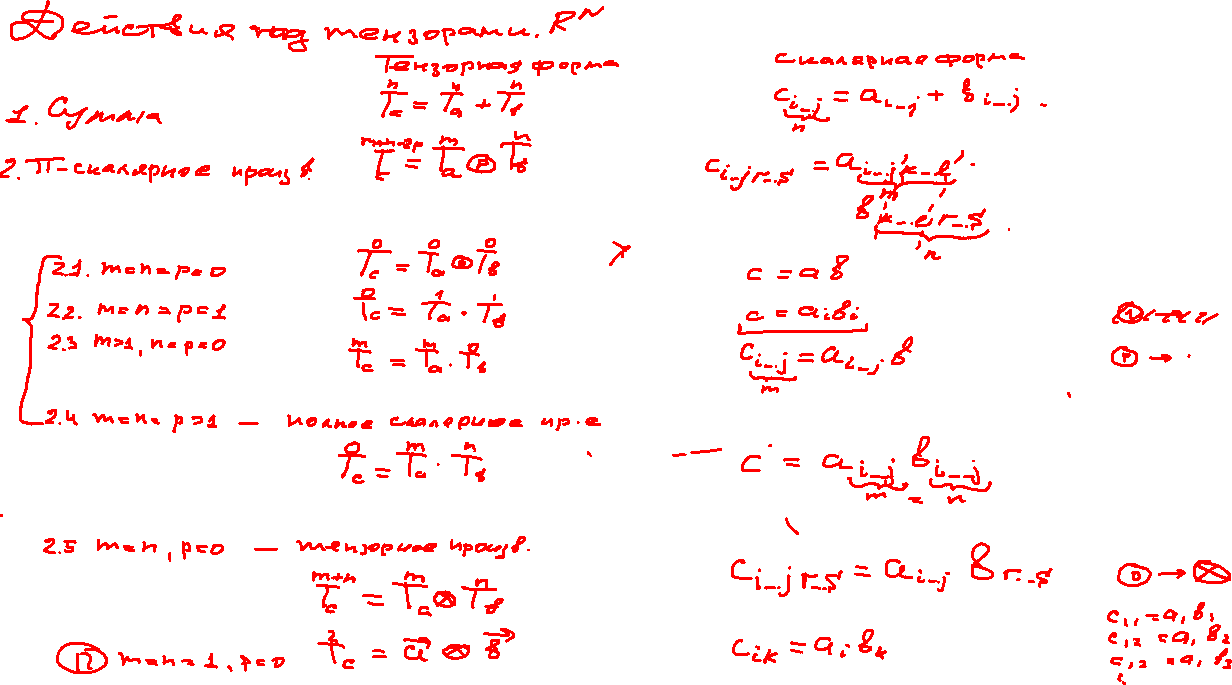 Действия над тензорами. R^N
Тензорная форма    скалярная форма
1. Сумма    T_c^n = T_a^n + T_в^n    c_{i…j} (n) = a_{i…j} + в_{i…j}.
2. П-скалярное произв.    T_c^{m+n-2p} = T_a^m ⓟ T_в^n    c_{i…jr…s} = a_{i…jk…l} (m) ·
в_{k…lr…s} (n).
2.1. m=n=p=0    T_c^0 = T_a^0 ⓞ T_в^0    c = a в
2.2. m=n=p=1    T_c^0 = T_a^1 · T_в^1    c = a_i в_i
2.3 m>1, n=p=0    T_c^m = T_a^m · T_в^0    c_{i…j} (m) = a_{i…j} в    ⓟ → ·
2.4 m=n=p>1 — полное скалярное пр-е
T_c^0 = T_a^m · T_в^n    c = a_{i…j} в_{i…j} (m = n)
2.5 m=n, p=0 — тензорное произв.
T_c^{m+n} = T_a^m ⊗ T_в^n    c_{i…jr…s} = a_{i…j} в_{r…s}    ⓞ → ⊗
Ⓟ m=n=1, p=0    T_c^2 = a⃗ ⊗ в⃗    c_{ik} = a_i в_k
c_{11} = a_1 в_1
c_{12} = a_1 в_2
c_{12} = a_1 в_3